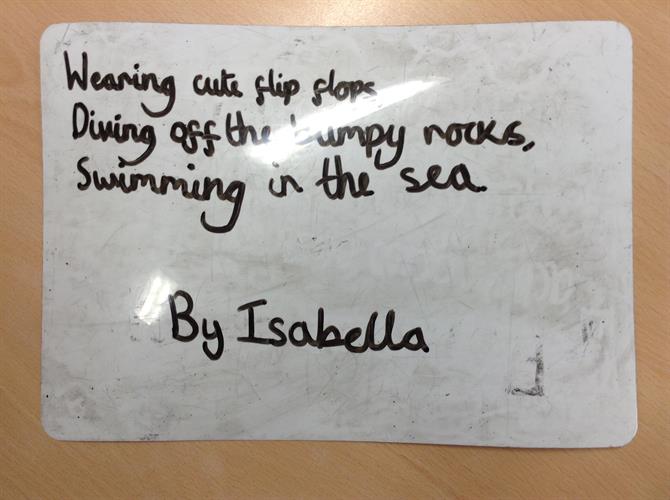 Wearing cute flip flops
Diving off the bumpy rocks,
Swimming in the sea.
By Isabella